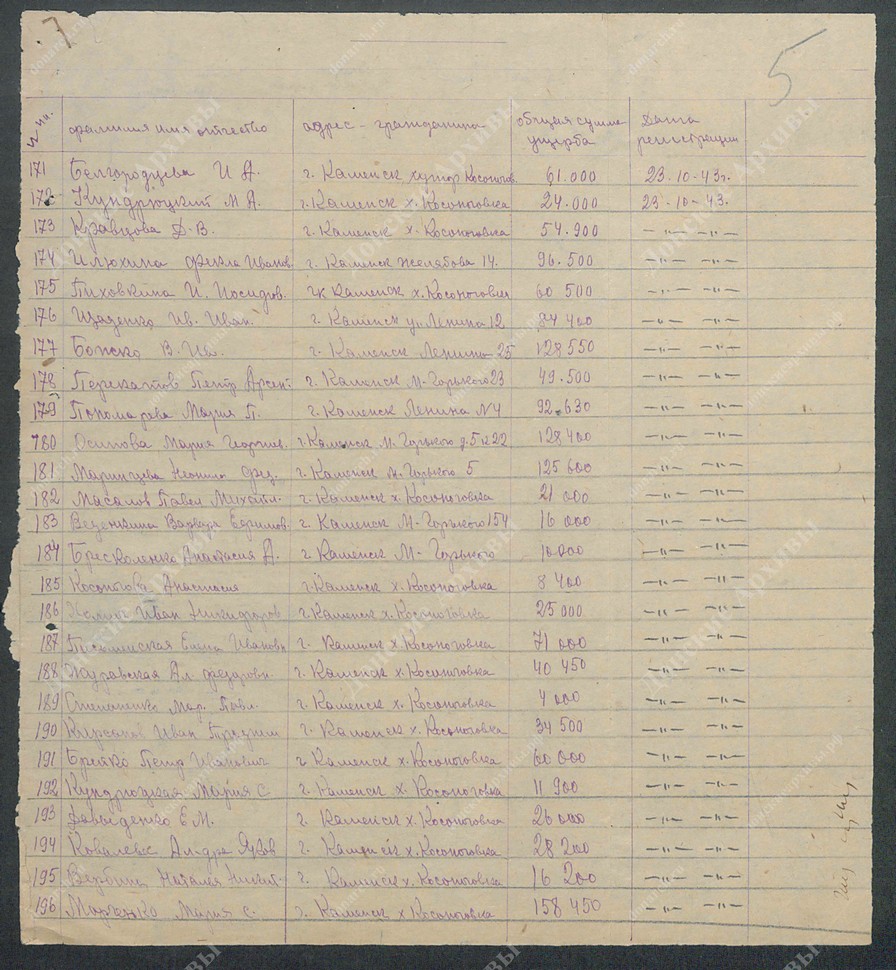 7
5
№ пп. фамилия имя отчество адрес-гражданина общая сумма ущерба Дата регистрации
171 Белгородцева И А. г. Каменск хутор Косоногов. 61.000 23.10-43г.
172 Кундрюцкий М А. г. Каменск х. Косоноговка 24.000 23-10-43.
173 Кравцова Д-В. г. Каменск х. Косоноговка 54.900 -〃- -〃-
174 Илюхина Фекла Иванов. г. Каменск Желябова 14. 96.500 -〃- -〃-
175 Пиховкина И. Иосифов. г. Каменск х. Косоноговка 60 500 -〃- -〃-
176 Щаденко Ив. Иван. г. Каменск ул Ленина 12 84 400 -〃- -〃-
177 Божко В. Ив. г. Каменск Ленина 25 128 550 -〃- -〃-
178 Перекатов Петр Арсент. г. Каменск М-Горького 23 49.500 -〃- -〃-
179 Пономарева Мария П. г. Каменск Ленина №4 92.630 -〃- -〃-
180 Осипова Мария Георгиев. г. Каменск М. Горького д. 5 128 400 -〃- -〃-
181 г. Каменск М. Горького 5 125 600 -〃- -〃-
182 Масалов Павел Михайл. г. Каменск х. Косоноговка 21 000 -〃- -〃-
183 Веденкина Варвара Ефимов. г. Каменск М-Горького 154 16 000 -〃- -〃-
184 Анастасия А. г. Каменск М-Горького 10000 -〃- -〃-
185 Косоногова Анастасия г. Каменск х. Косоноговка 8 400 -〃- -〃-
186 Иван Никифоров г. Каменск х. Косоноговка 25 000 -〃- -〃-
187 Елена Ивановн г. Каменск х. Косоноговка 71 000 -〃- -〃-
188 Журавская Ал. Федоровн. г. Каменск х. Косоноговка 40 450 -〃- -〃-
189 Степаненко Мар. Павл. г. Каменск х. Косоноговка 4 000 -〃- -〃-
190 Кирсанов Иван г. Каменск х. Косоноговка 34 500 -〃- -〃-
191 Бретко Петр Иванович г Каменск х. Косоноговка 60 000 -〃- -〃-
192 Кундрюцкая Мария С г. Каменск х. Косоноговка 11 900 -〃- -〃-
193 Давиденко Е М. г. Каменск х. Косоноговка 26 000 -〃- -〃-
194 Ковалева Ал-дра Яков г. Каменск х. Косоноговка 28 200 -〃- -〃-
195 Вербина Наталья Никит. г. Каменск х. Косоноговка 16 200 -〃- -〃-
196 Марченко Мария С. г. Каменск х. Косоноговка 158 450 -〃- -〃-